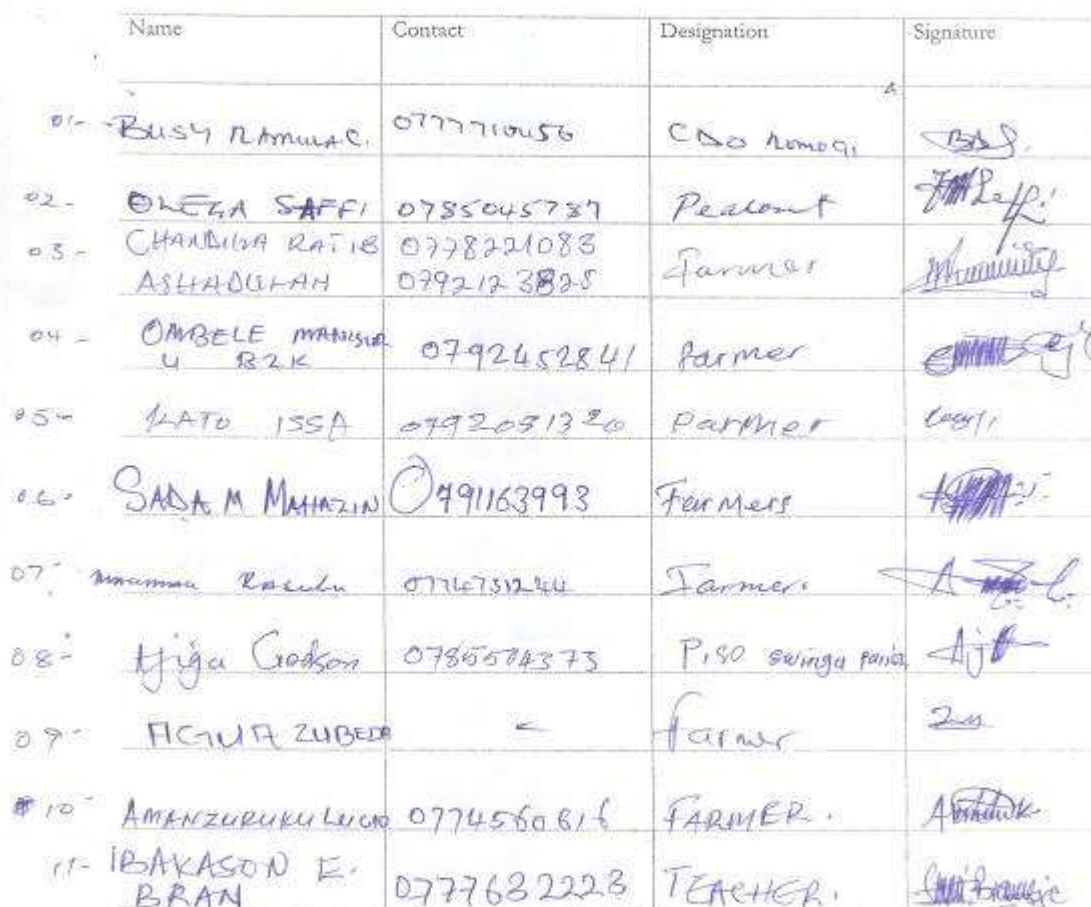 Name Contact Designation Signature
01- BUSY RAMULA C. 0777710456 CDO Romogi
02- OLEGA SAFFI 0785045787 Peasant
03- CHANDIGA RATIB 0778221083 farmer
ASHADULAH 0792123825
04- OMBELE MANSUR 0792452841 farmer
U B2K
05- KATO ISSA 0792031320 Farmer
06- SADAM MAHAZIN 0791163993 Farmers
07- Rasulu 0774731244 Farmer.
08- Ajiga Godson 0785504373 P.ISO swinga
09- AGUA ZUBEDA - farmer
10- AMANZURUKU LUCIO 0774560616 FARMER.
11- IBAKASON E. 0777632223 TEACHER.
BRAN